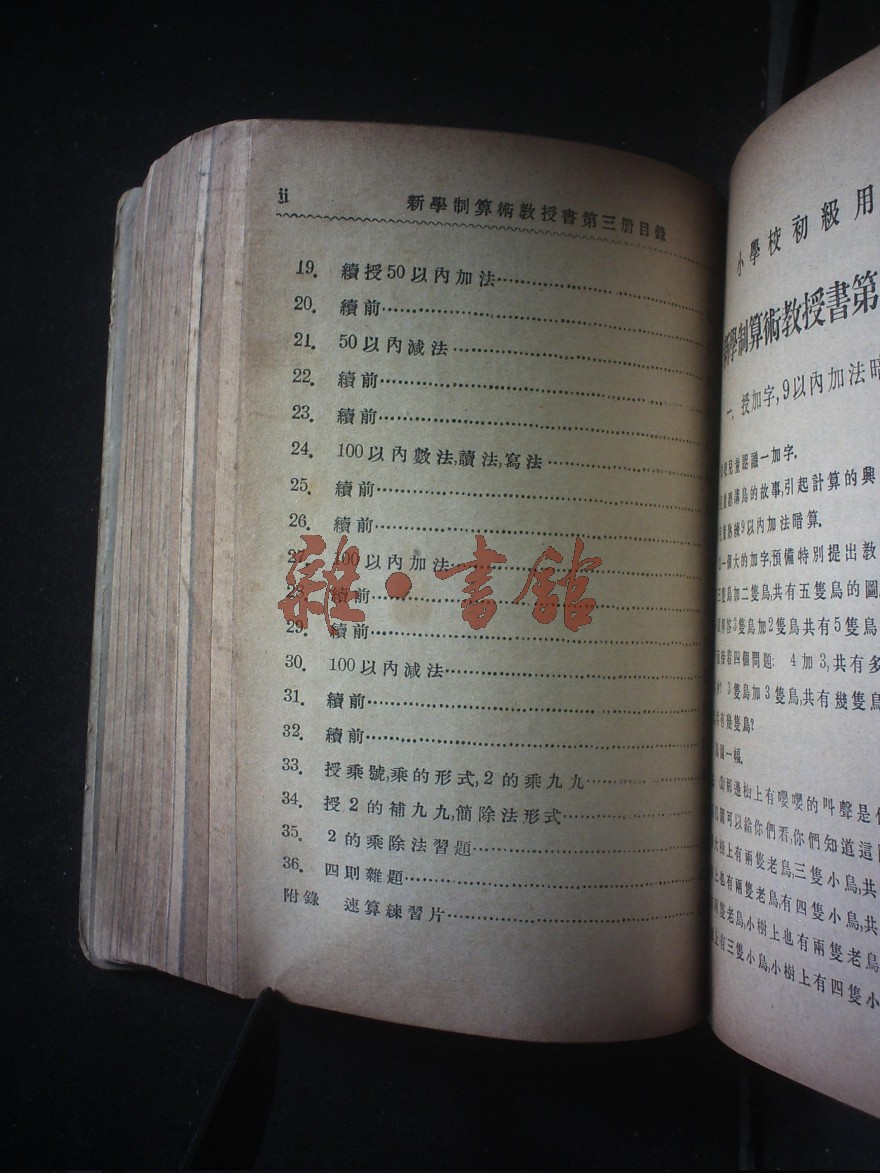 ii
新學制算術教授書第三册目錄
19. 續授50以內加法
20. 續前
21. 50以內減法
22. 續前
23. 續前
24. 100以內數法,讀法,寫法
25. 續前
26. 續前
27. 100以內加法
28. 續前
29. 續前
30. 100以內減法
31. 續前
32. 續前
33. 授乘號,乘的形式,2的乘九九
34. 授2的補九九,簡除法形式
35. 2的乘除法習題
36. 四則雜題
附錄 速算練習片
雜·書館
小學校初級用
新學制算術教授書第
一. 授加字,9以內加法暗
兒童認識一加字.
講鳥的故事,引起計算的興
熟練9以內加法暗算.
一個大的加字,預備特別提出教
三隻鳥加二隻鳥,共有五隻鳥的圖
3隻鳥加2隻鳥共有5隻鳥
着四個問題: 4加3,共有多
3隻鳥加3隻鳥,共有幾隻鳥
共有幾隻鳥?
圖一幅.
那邊樹上有嚶嚶的叫聲是
可以給你們看,你們知道這
大樹上有兩隻老鳥,三隻小鳥,共
上也有兩隻老鳥,有四隻小鳥,共
兩隻老鳥,小樹上也有兩隻老鳥
上有三隻小鳥,小樹上有四隻小